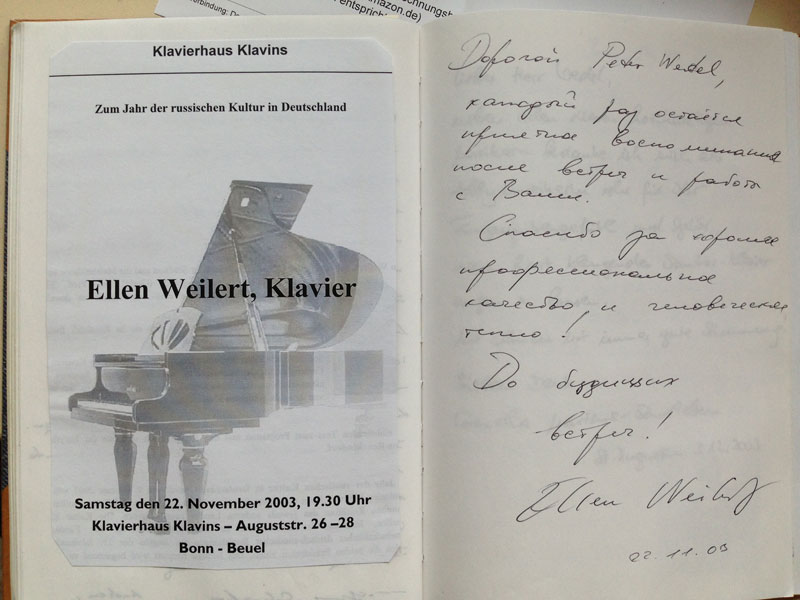 rechnungsb
amazon.de)
entspricht
Klavierhaus Klavins
Zum Jahr der russischen Kultur in Deutschland
Ellen Weilert, Klavier
Samstag den 22. November 2003, 19.30 Uhr
Klavierhaus Klavins – Auguststr. 26 –28
Bonn - Beuel
Дорогой Peter Wedel,
каждый раз остаётся
приятное воспоминание
после встреч и работы
с Вами.
Спасибо за хорошее
профессиональное
качество и человеческое
тепло!
До будущих
встреч!
Ellen Weilert
22.11.03